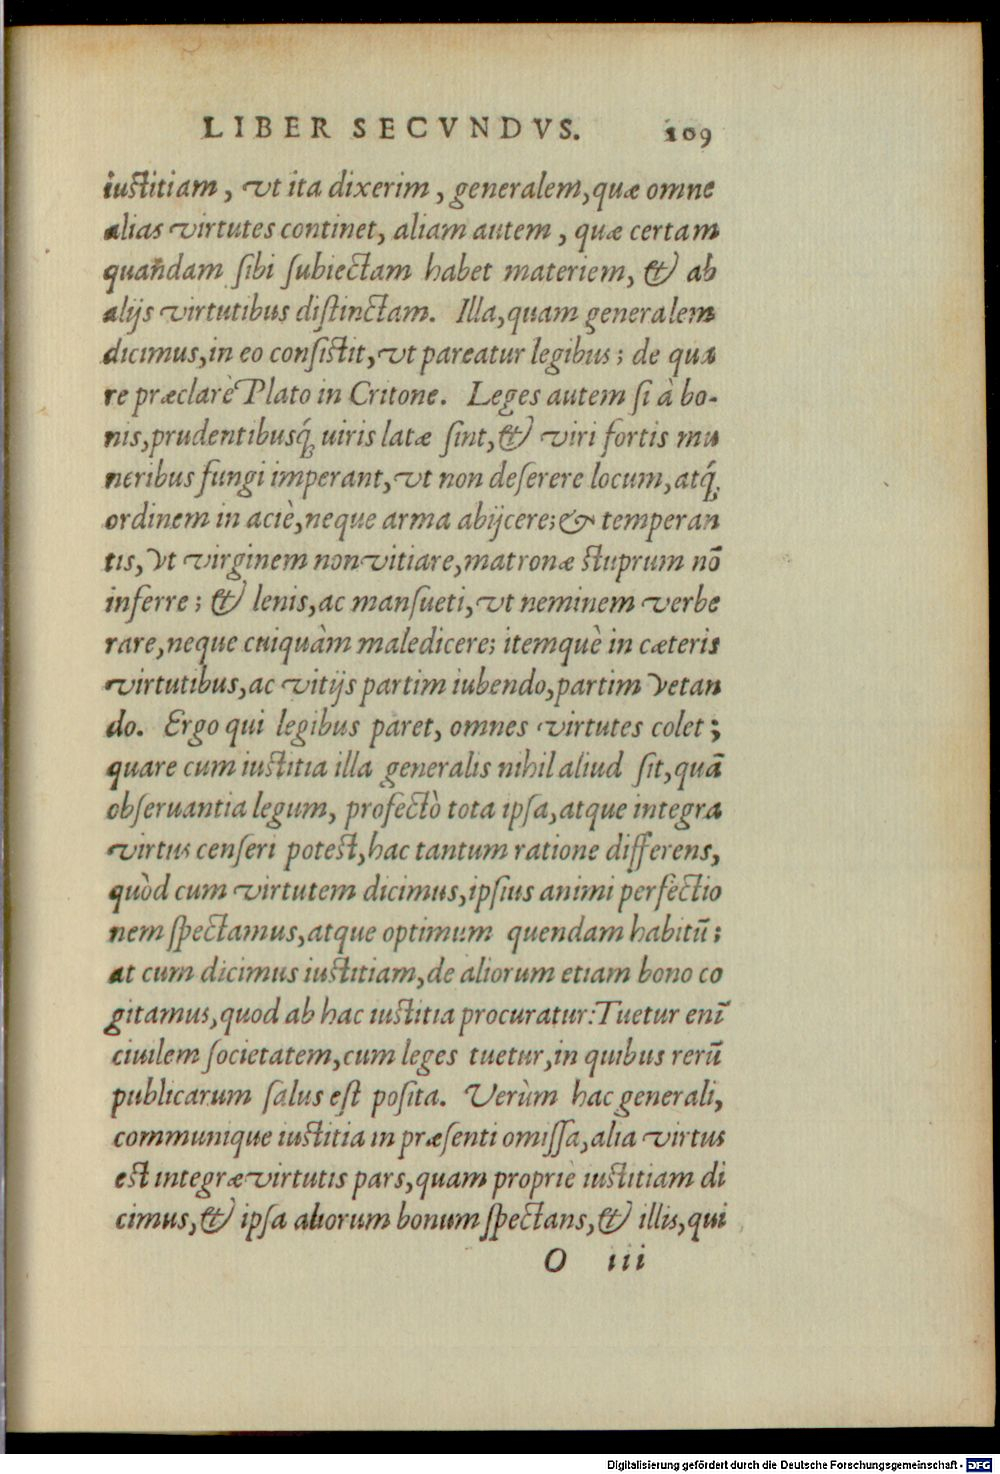 LIBER SECVNDVS. 109
iustitiam, vt ita dixerim, generalem, quæ omne
alias virtutes continet, aliam autem, quæ certam
quandam sibi subiectam habet materiem, & ab
alijs virtutibus distinctam. Illa, quam generalem
dicimus, in eo consistit, vt pareatur legibus; de qua
re præclarè Plato in Critone. Leges autem si à bo-
nis, prudentibusq́; uiris latæ sint, & viri fortis mu
neribus fungi imperant, vt non deserere locum, atq́;
ordinem in aciè, neque arma abijcere; & temperan
tis, vt virginem non vitiare, matronæ stuprum nō
inferre; & lenis, ac mansueti, vt neminem verbe
rare, neque cuiquàm maledicere; itemquè in cæteris
virtutibus, ac vitijs partim iubendo, partim vetan
do. Ergo qui legibus paret, omnes virtutes colet;
quare cum iustitia illa generalis nihil aliud sit, quā
obseruantia legum, profectò tota ipsa, atque integra
virtus censeri potest, hac tantum ratione differens,
quòd cum virtutem dicimus, ipsius animi perfectio
nem spectamus, atque optimum quendam habitū;
at cum dicimus iustitiam, de aliorum etiam bono co
gitamus, quod ab hac iustitia procuratur: Tuetur enī
ciuilem societatem, cum leges tuetur, in quibus rerū
publicarum salus est posita. Verùm hac generali,
communique iustitia in præsenti omissa, alia virtus
est integræ virtutis pars, quam propriè iustitiam di
cimus, & ipsa aliorum bonum spectans, & illis, qui
O iii
Digitalisierung gefördert durch die Deutsche Forschungsgemeinschaft - DFG